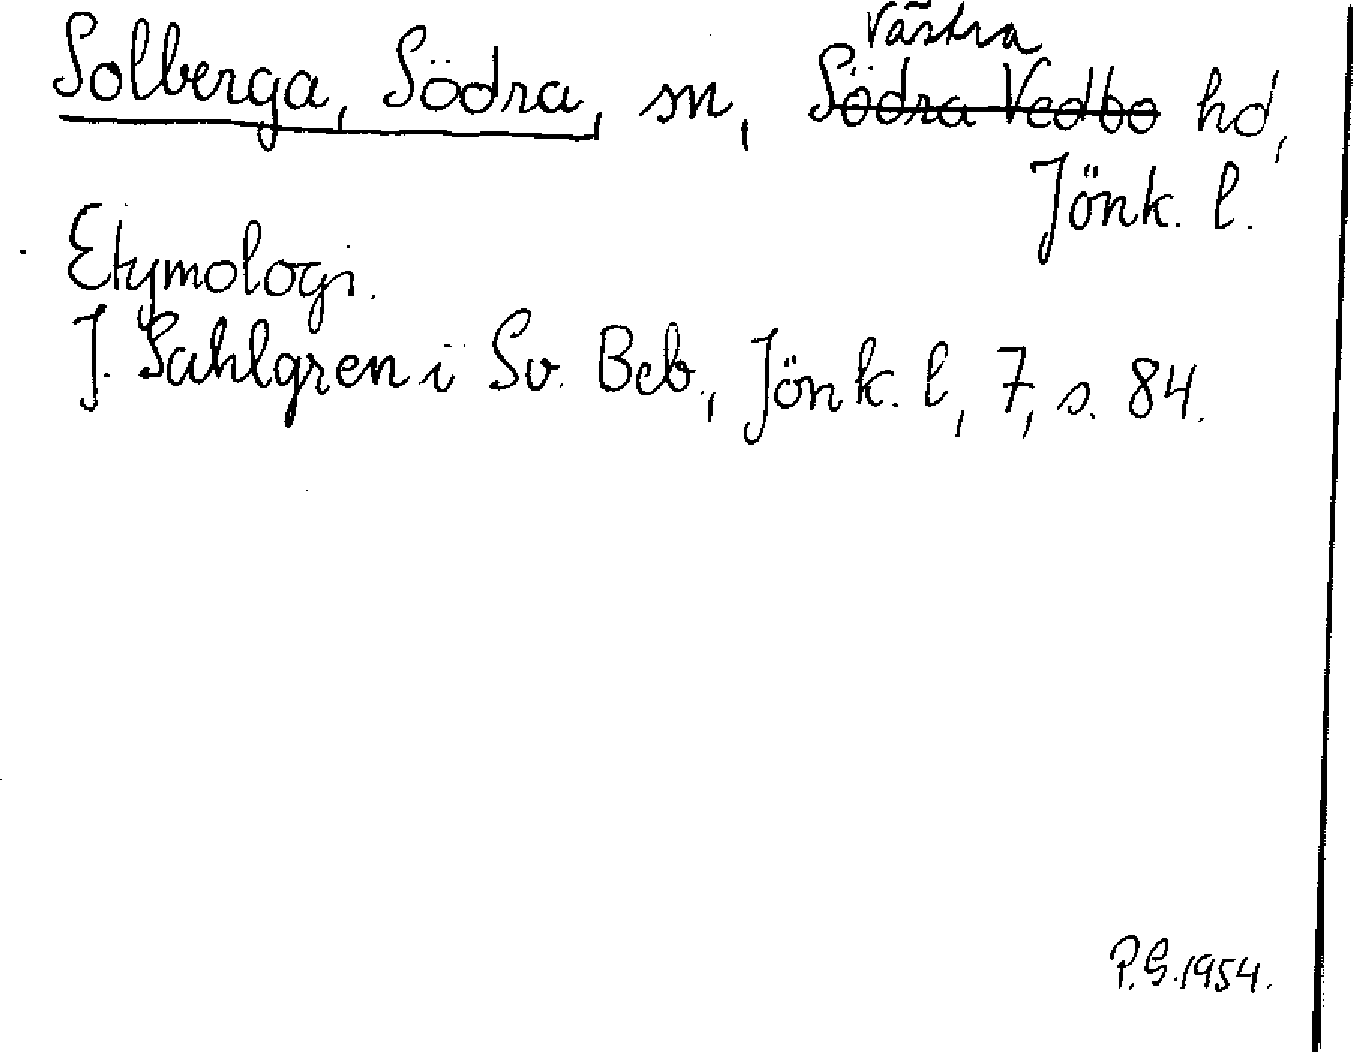 Västra
Solberga, Södra, sn, Södra Vedbo hd,
Jönk. l.
Etymologi.
J. Sahlgren i Sv. Beb., Jönk. l, 7, s. 84.
P.G. 1954.